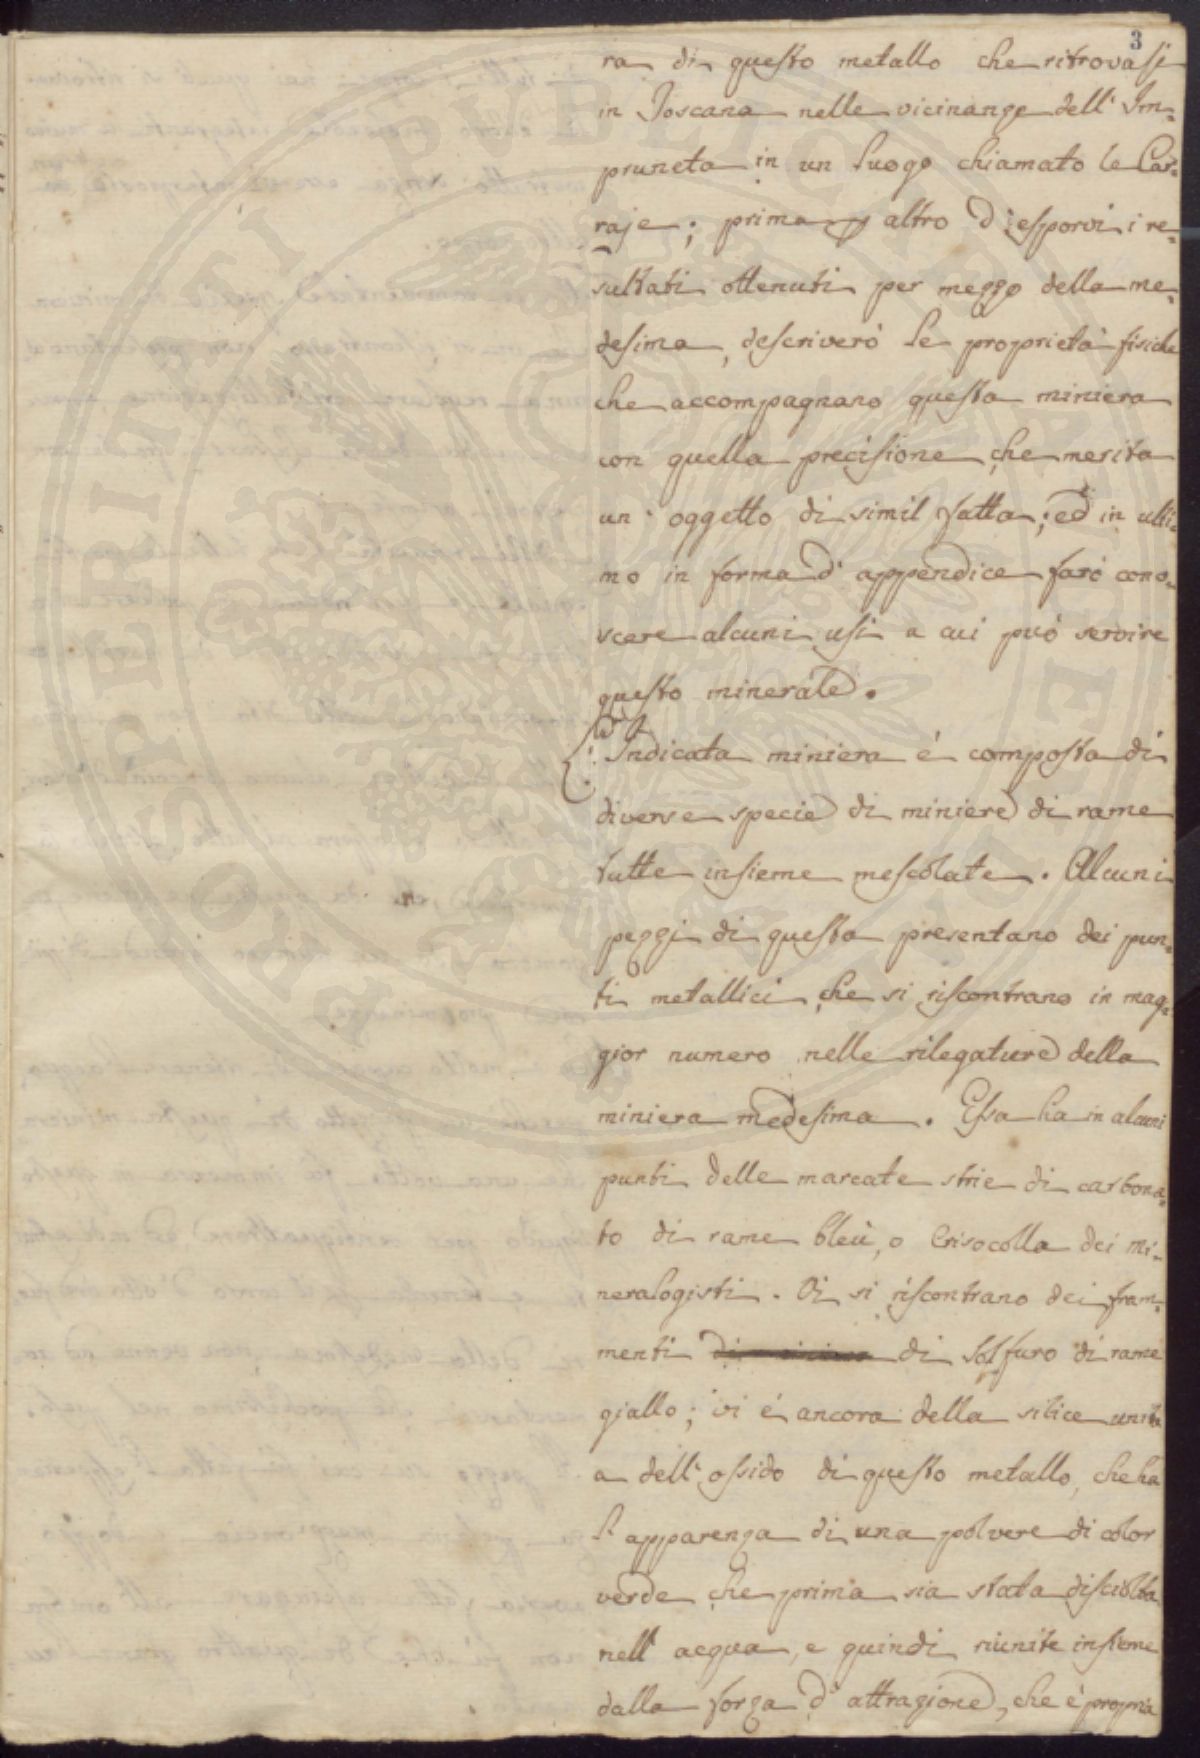 3
ra di questo metallo che ritrovasi
in Toscana nelle vicinanze dell' Im=
pruneta in un luogo chiamato le Car=
raje; prima altro d'esporvi i re=
sultati ottenuti per mezzo della me=
desima, descriverò le proprietà fisiche
che accompagnano questa miniera
con quella precisione che merita
un' oggetto di simil fatta; ed in ulti=
mo in forma d' appendice farò cono=
scere alcuni usi a cui può servire
questo minerale.
Indicata miniera è composta di
diverse specie di miniere di rame
tutte insieme mescolate. Alcuni
pezzi di questa presentano dei pun=
ti metallici che si riscontrano in mag=
gior numero nelle rilegature della
miniera medesima. Essa ha in alcuni
punti delle marcate strie di carbona=
to di rame bleù, o Crisocolla dei mi=
neralogisti. Vi si riscontrano dei fram=
menti di solfuro di rame
giallo; vi è ancora della silice unita
a dell' ossido di questo metallo, che ha
l' apparenza di una polvere di color
verde che prima sia stata disciolta
nell' acqua, e quindi riunite insieme
dalla forza d' attrazione, che è propria
PROSPERITATI PUBLICAE AUGENDAE